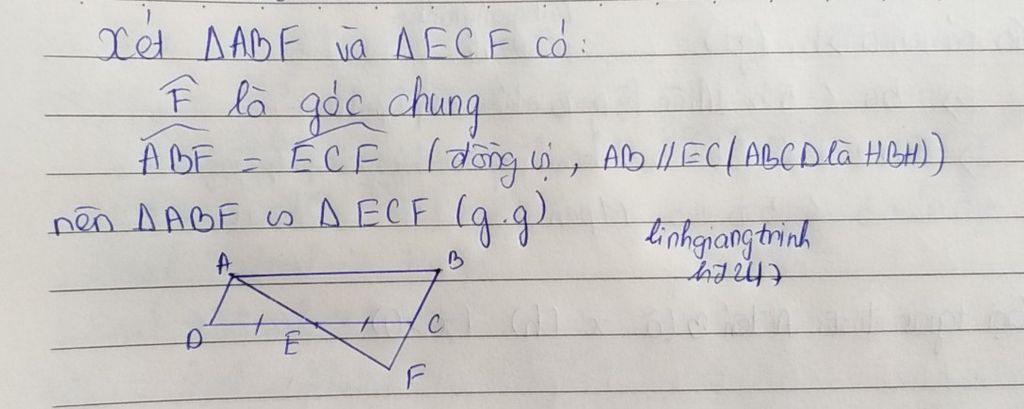 Xét ΔABF và ΔECF có:
F̂ là góc chung
ABF̂ = ECF̂ (đồng vị, AB // EC (ABCD là HBH))
nên ΔABF ∽ ΔECF (g.g)
linhgiangtrinh
h7247
A
B
D
E
C
F